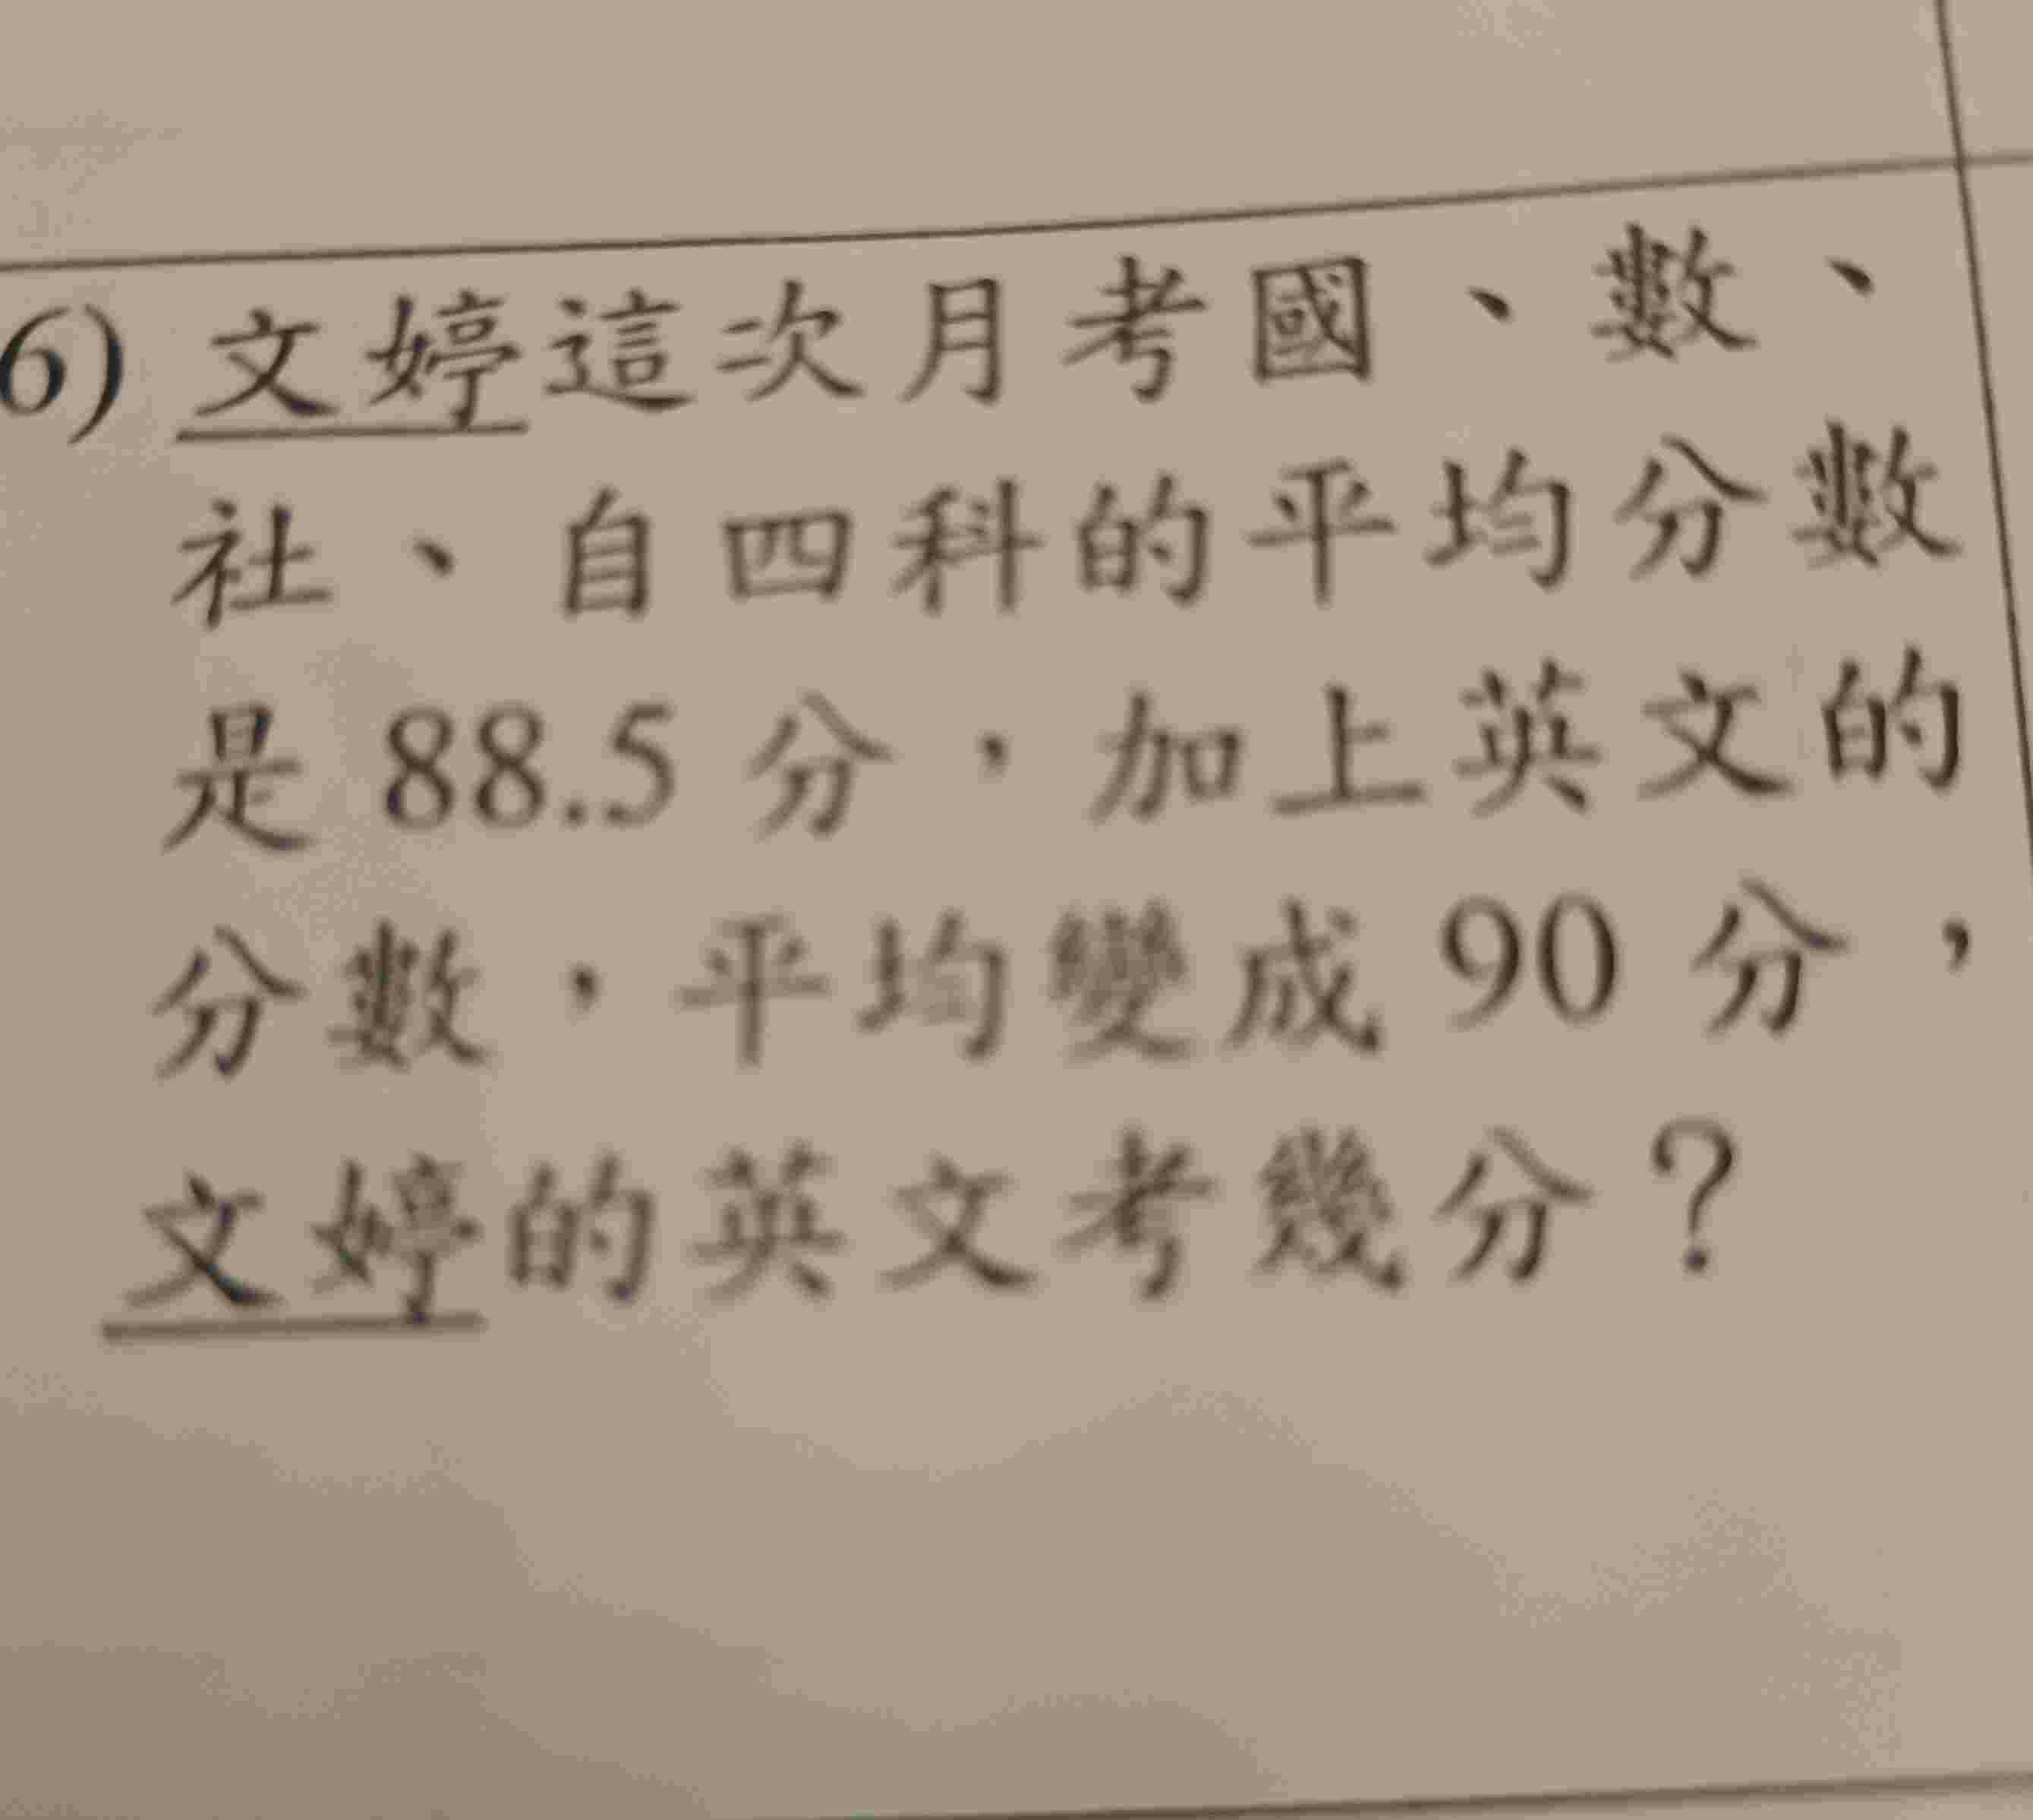 6) 文婷這次月考國、數、
社、自四科的平均分數
是 88.5 分，加上英文的
分數，平均變成 90 分，
文婷的英文考幾分？